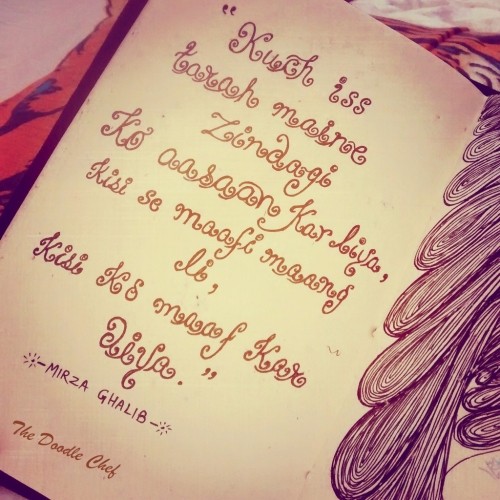 "Kuch iss
tarah maine
Zindagi
Ko aasaan Kar liya,
Kisi se maafi maang
li,
Kisi Ko maaf Kar
Diya."
-MIRZA GHALIB-
The Doodle Chef